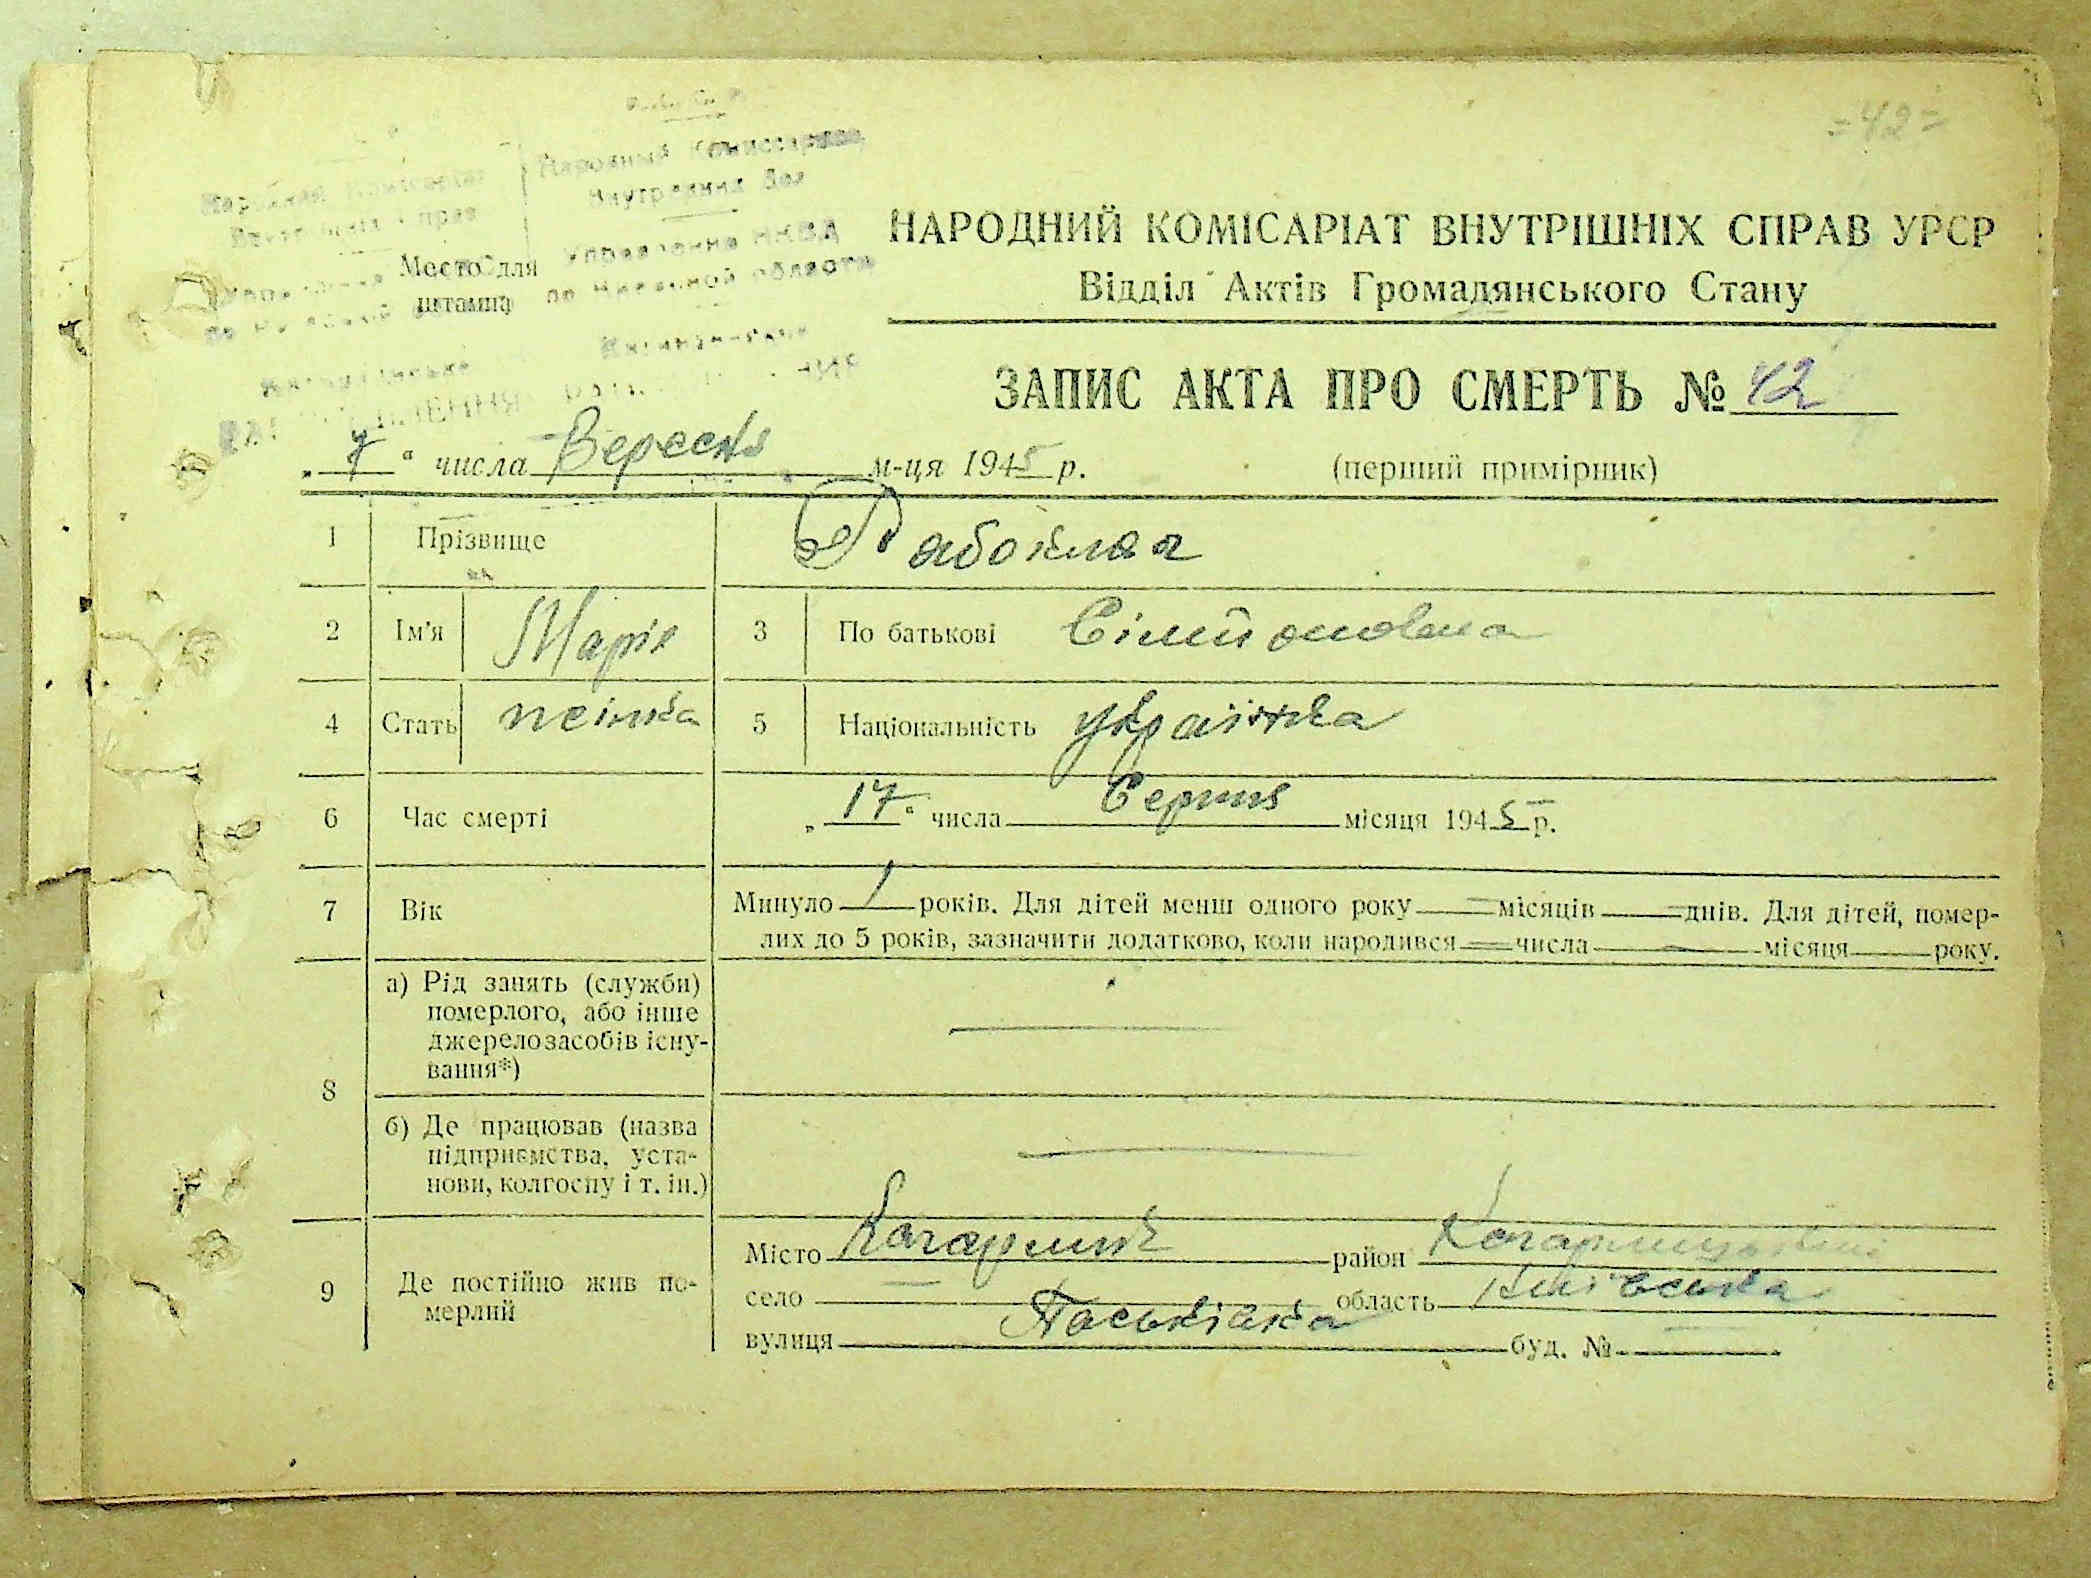 =42=
Народный Комиссариат
Внутренних Дел
Управление НКВД
по Киевской области
Место для
штампа
НАРОДНИЙ КОМІСАРІАТ ВНУТРІШНІХ СПРАВ УРСР
Відділ Актів Громадянського Стану
ЗАПИС АКТА ПРО СМЕРТЬ № 42
„ 7 “ числа Вересня м-ця 1945 р. (перший примірник)
1 Прізвище
2 Ім'я Марія 3 По батькові
4 Стать жінка 5 Національність українка
6 Час смерті „ 17 “ числа Серпня місяця 1945 р.
7 Вік Минуло 1 років. Для дітей менш одного року = місяців = днів. Для дітей, помер-
лих до 5 років, зазначити додатково, коли народився = числа — місяця року.
8 а) Рід занять (служби)
померлого, або інше
джерело засобів існу-
вання*) —
б) Де працював (назва
підприємства, уста-
нови, колгоспу і т. ін.) —
9 Де постійно жив по-
мерлий
Місто Кагарлик район Кагарлицький
село — область Київська
вулиця Паськівка буд. № —